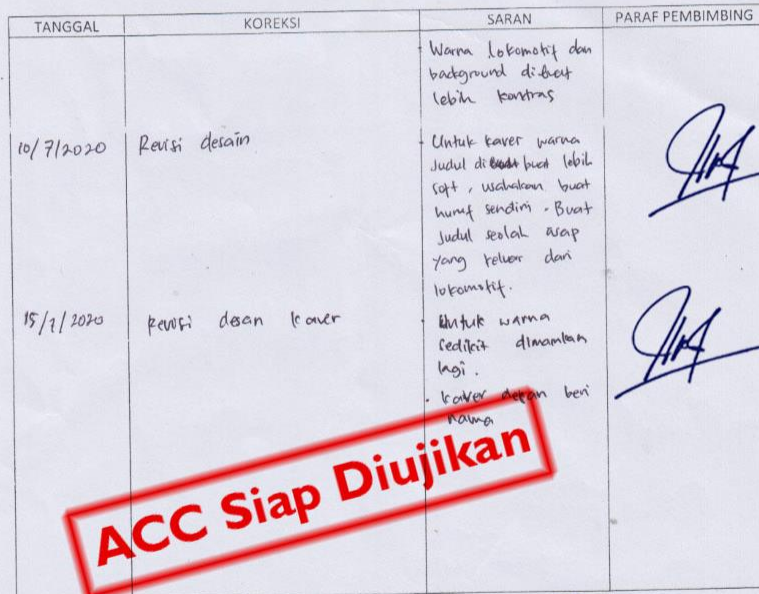 TANGGAL KOREKSI SARAN PARAF PEMBIMBING
Warna lokomotif dan
background dibuat
lebih kontras
10/7/2020 Revisi desain - Untuk kaver warna
judul di buat lebih
soft, usahakan buat
huruf sendiri. Buat
judul seolah asap
yang keluar dari
lokomotif.
15/7/2020 Revisi desan kaver Untuk warna
sedikit dimainkan
lagi.
- kaver depan beri
nama
ACC Siap Diujikan